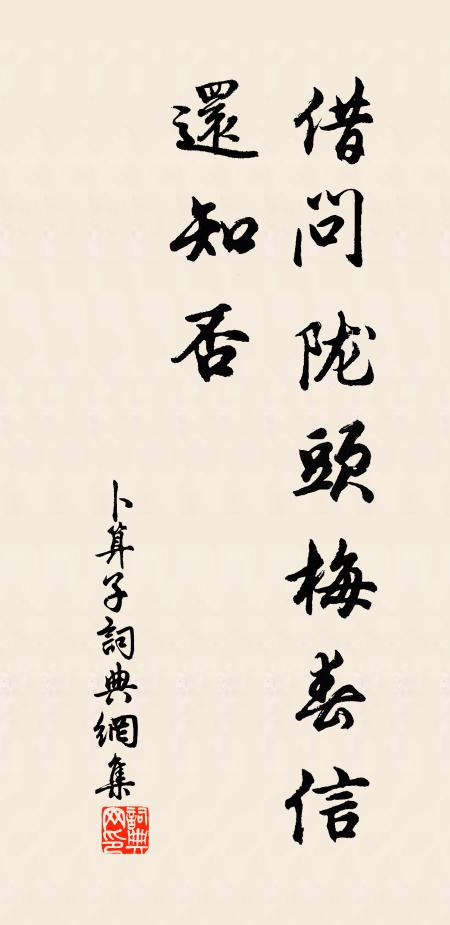 借问陇頭梅春信
還知否
卜算子詞典網集
詞典网印